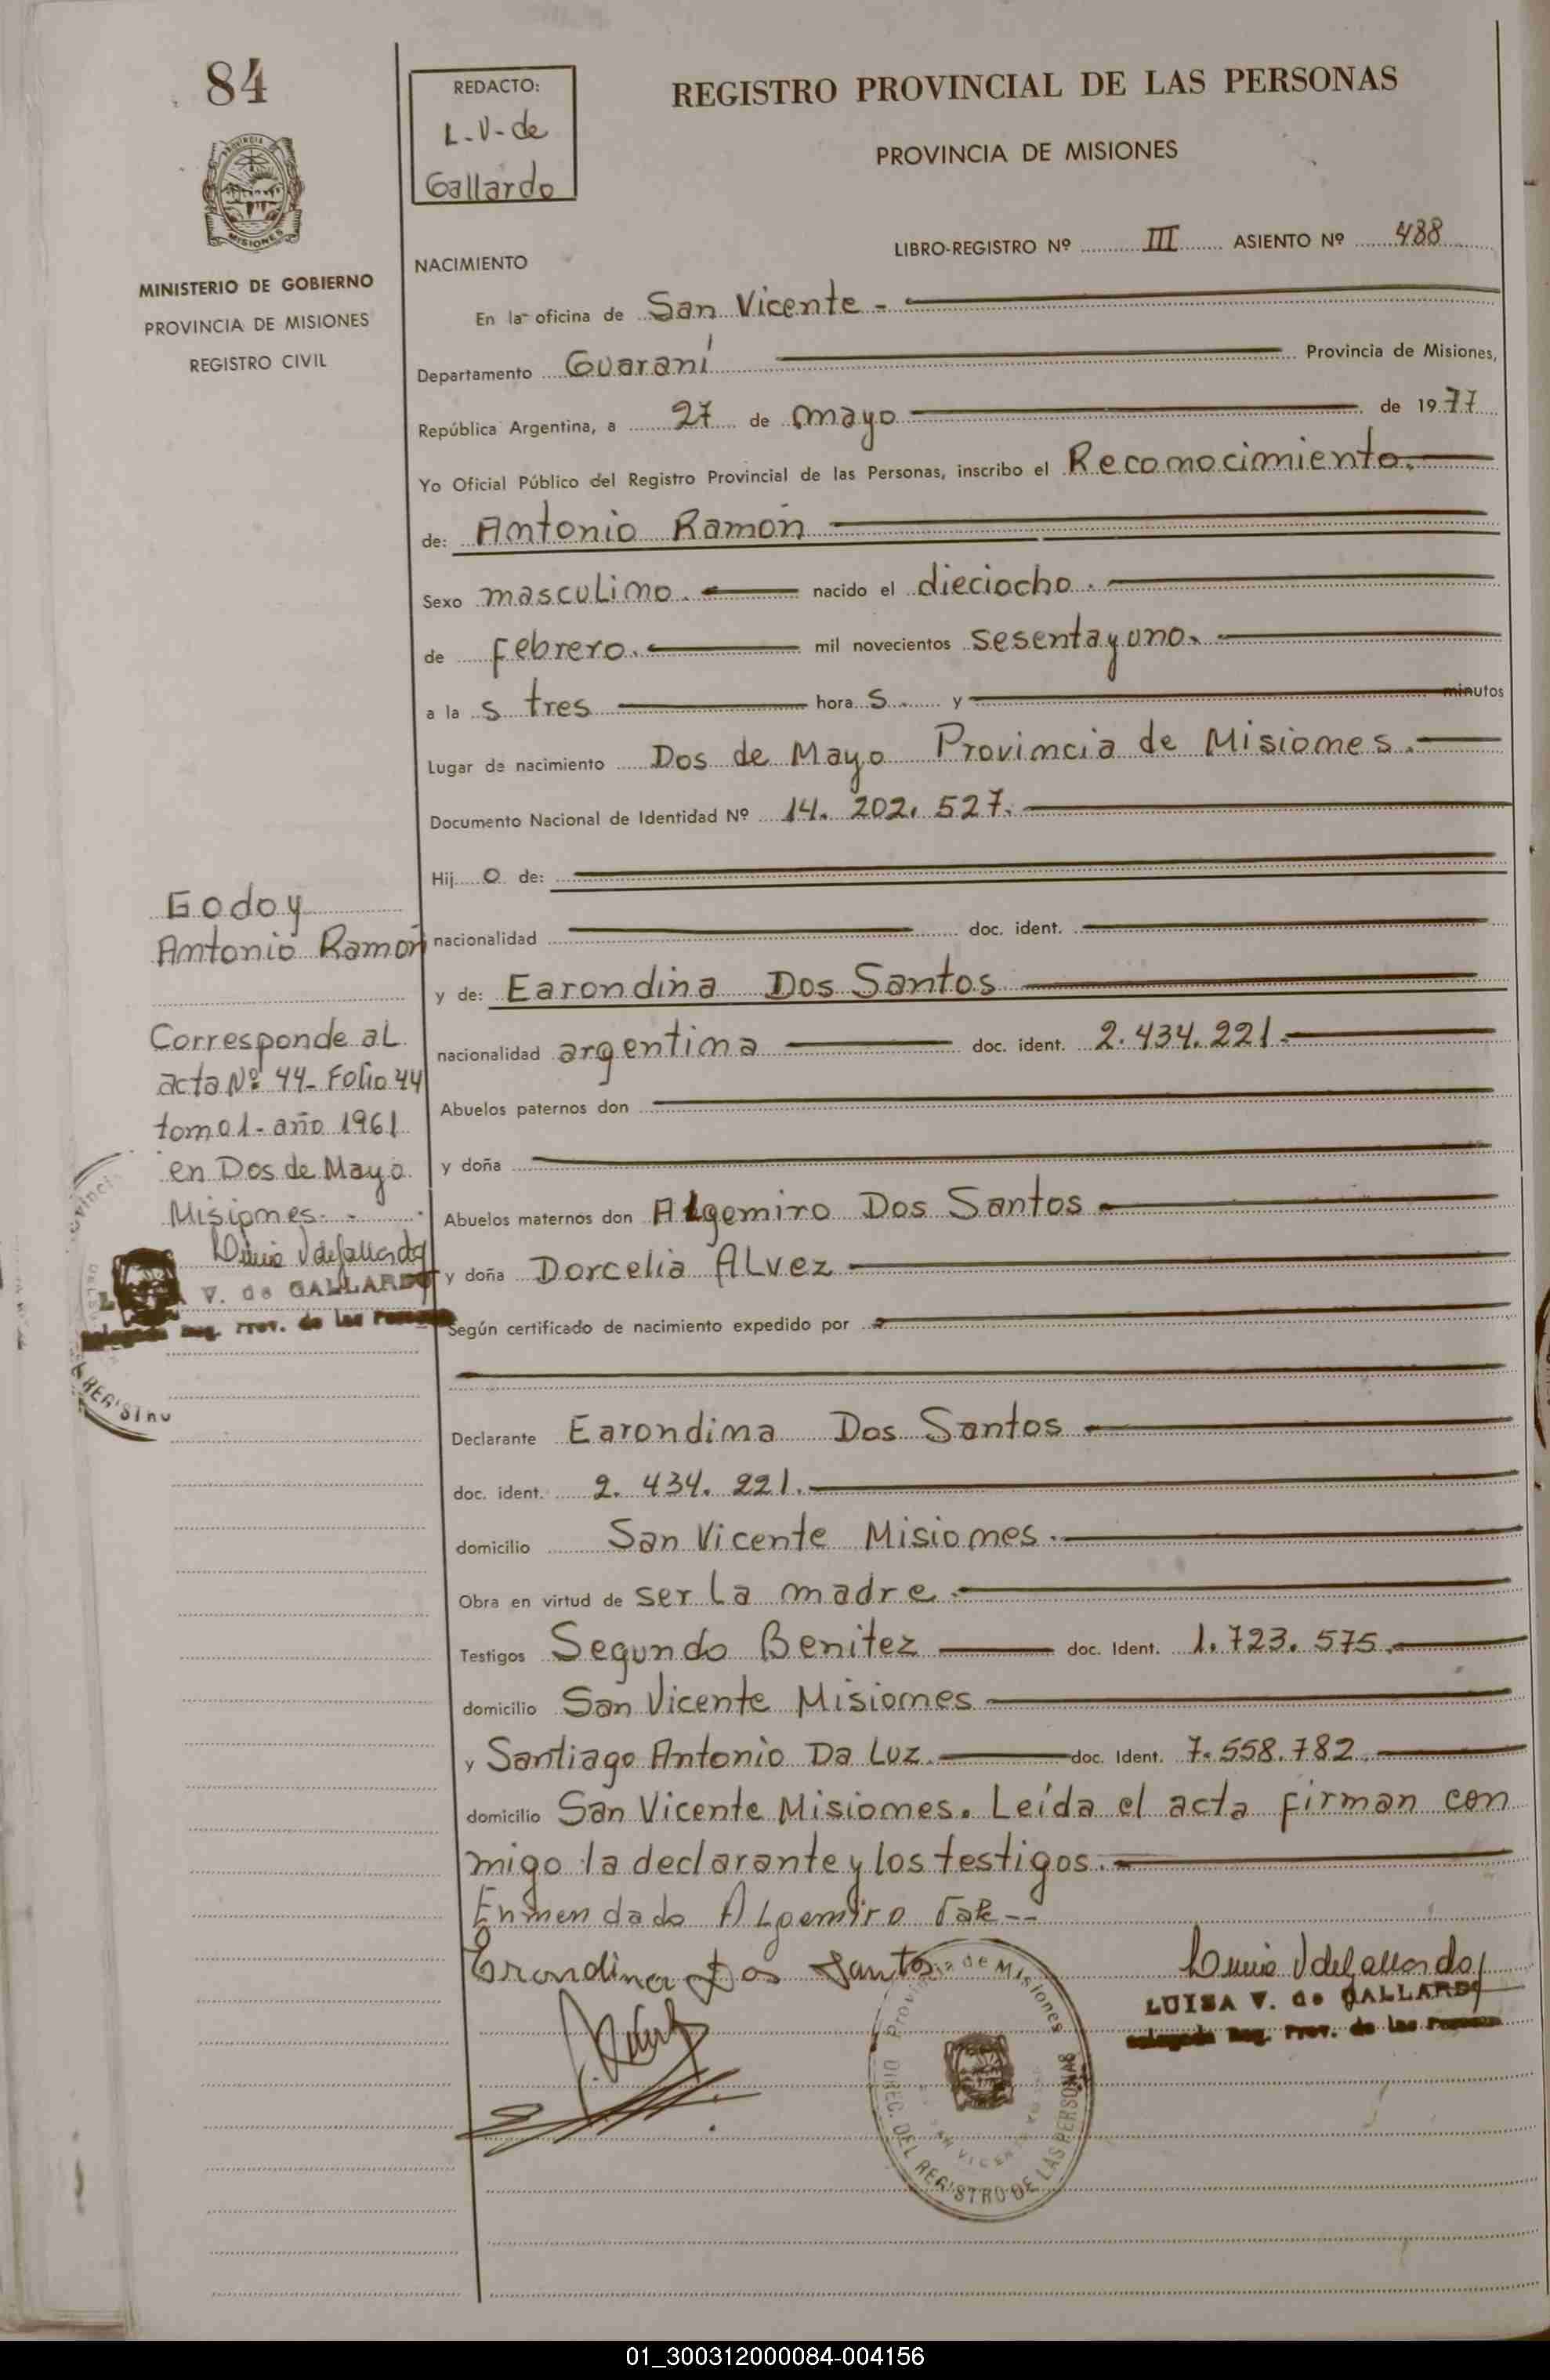 84
PROVINCIA DE
MISIONES
MINISTERIO DE GOBIERNO
PROVINCIA DE MISIONES
REGISTRO CIVIL
REDACTO:
L-V-de
Gallardo
REGISTRO PROVINCIAL DE LAS PERSONAS
PROVINCIA DE MISIONES
LIBRO-REGISTRO Nº III ASIENTO Nº 488
NACIMIENTO
En la oficina de San Vicente -
Departamento Guaraní Provincia de Misiones,
República Argentina, a 27 de mayo de 1977
Yo Oficial Público del Registro Provincial de las Personas, inscribo el Reconocimiento.
de: Antonio Ramón
Sexo masculino. nacido el dieciocho.
de febrero. mil novecientos sesenta y uno.
a la s tres hora s. y minutos
Lugar de nacimiento Dos de Mayo Provincia de Misiones.
Documento Nacional de Identidad Nº 14.202.527.
Hij o de:
nacionalidad doc. ident.
y de: Earondina Dos Santos
nacionalidad argentina doc. ident. 2.434.221.
Abuelos paternos don
y doña
Abuelos maternos don Algemiro Dos Santos
y doña Dorcelia Alvez
Según certificado de nacimiento expedido por
Declarante Earondina Dos Santos
doc. ident. 2.434.221.
domicilio San Vicente Misiones.
Obra en virtud de ser la madre.
Testigos Segundo Benitez doc. Ident. 1.723.575.
domicilio San Vicente Misiones
y Santiago Antonio Da Luz. doc. Ident. 7.558.782.
domicilio San Vicente Misiones. Leída el acta firman con
migo la declarante y los testigos.
Enmendado Algemiro Vale--
Erondina Dos Santos
LUISA V. de GALLARDO
Delegada Reg. Prov. de las Personas
Provincia de Misiones
DIREC. DEL REGISTRO DE LAS PERSONAS
SAN VICENTE
Godoy
Antonio Ramón
Corresponde al
acta Nº 44- Folio 44
tomo 1- año 1961
en Dos de Mayo
Misiones.-
V. de GALLARDO
Delegada Reg. Prov. de las Personas
01_300312000084-004156